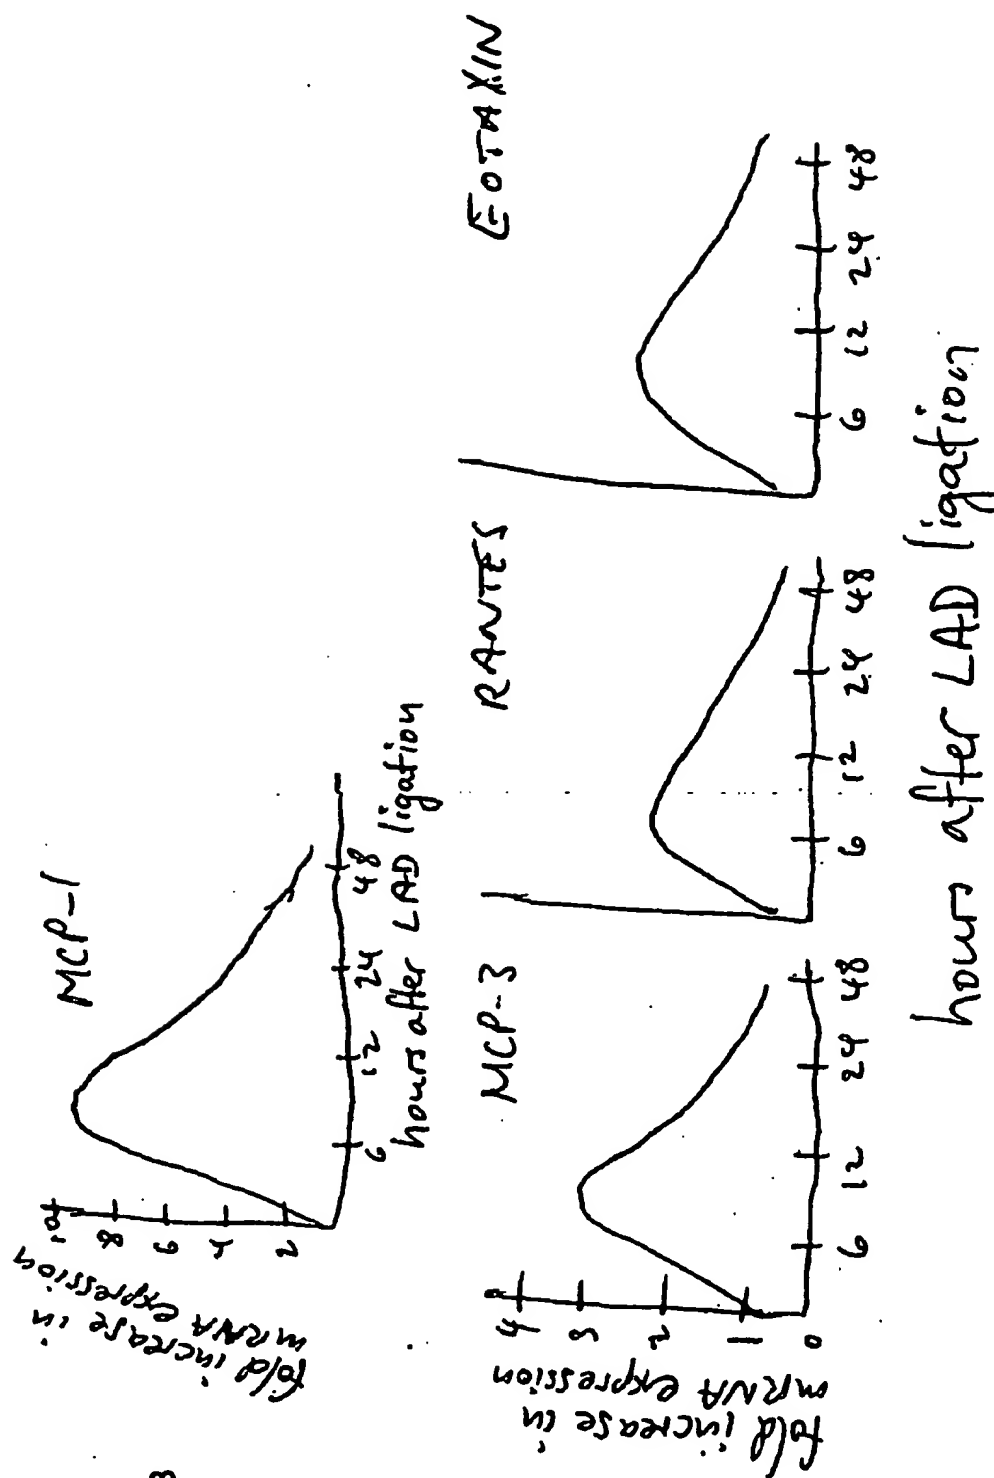 MCP-1
fold increase in
mRNA expression
10
8
6
4
2
6 12 24 48
hours after LAD ligation
MCP-3 RANTES EOTAXIN
fold increase in
mRNA expression
4
3
2
1
0
6 12 24 48 6 12 24 48 6 12 24 48
hours after LAD ligation